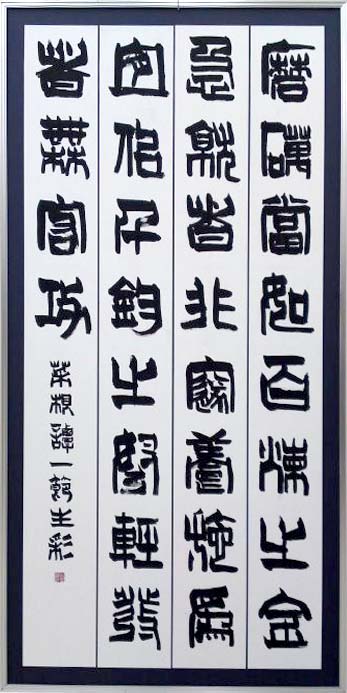 磨礪當如百煉之金
急就者非邃養施為
宜似千鈞之弩輕發
者無宏功
菜根譚一節